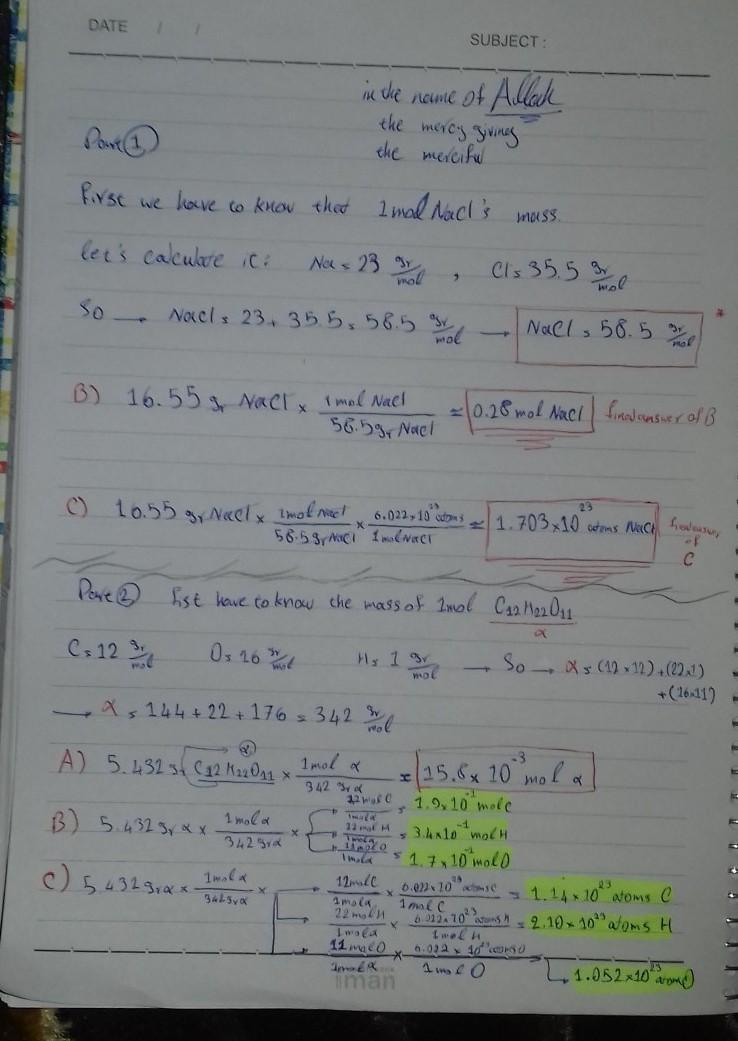 DATE / /
SUBJECT :
in the name of Allah
the mercy giving
the merciful
Part ①
first we have to know that 1mol NaCl's mass.
let's calculate it: Na = 23 gr/mol , Cl = 35.5 gr/mol
So → NaCl = 23 + 35.5 = 58.5 gr/mol → NaCl = 58.5 gr/mol *
B) 16.55 gr NaCl × 1mol NaCl / 58.5 gr NaCl ≈ 0.28 mol NaCl final answer of B
C) 16.55 gr NaCl × 1mol NaCl / 58.5 gr NaCl × 6.022×10²³ atoms / 1mol NaCl ≈ 1.703×10²³ atoms NaCl final answer of C
Part ② fist have to know the mass of 1mol C12H22O11
α
C = 12 gr/mol O = 16 gr/mol H = 1 gr/mol → So → α = (12×12) + (22×1)
+ (16×11)
→ α = 144 + 22 + 176 = 342 gr/mol
A) 5.432 gr C12H22O11 × 1mol α / 342 gr α ≈ 15.8 × 10⁻³ mol α
α
B) 5.432 gr α × 1mol α / 342 gr α ×
12 mol C / 1mol α = 1.9×10⁻¹ mol C
22 mol H / 1mol α = 3.4×10⁻¹ mol H
11 mol O / 1mol α = 1.7×10⁻¹ mol O
C) 5.432 gr α × 1mol α / 342 gr α ×
12mol C / 1mol α × 6.022×10²³ atoms C / 1mol C = 1.14×10²³ atoms C
22mol H / 1mol α × 6.022×10²³ atoms H / 1mol H = 2.10×10²³ atoms H
11 mol O / 1mol α × 6.022 × 10²³ atoms O / 1mol O = 1.052×10²³ atoms O
iman